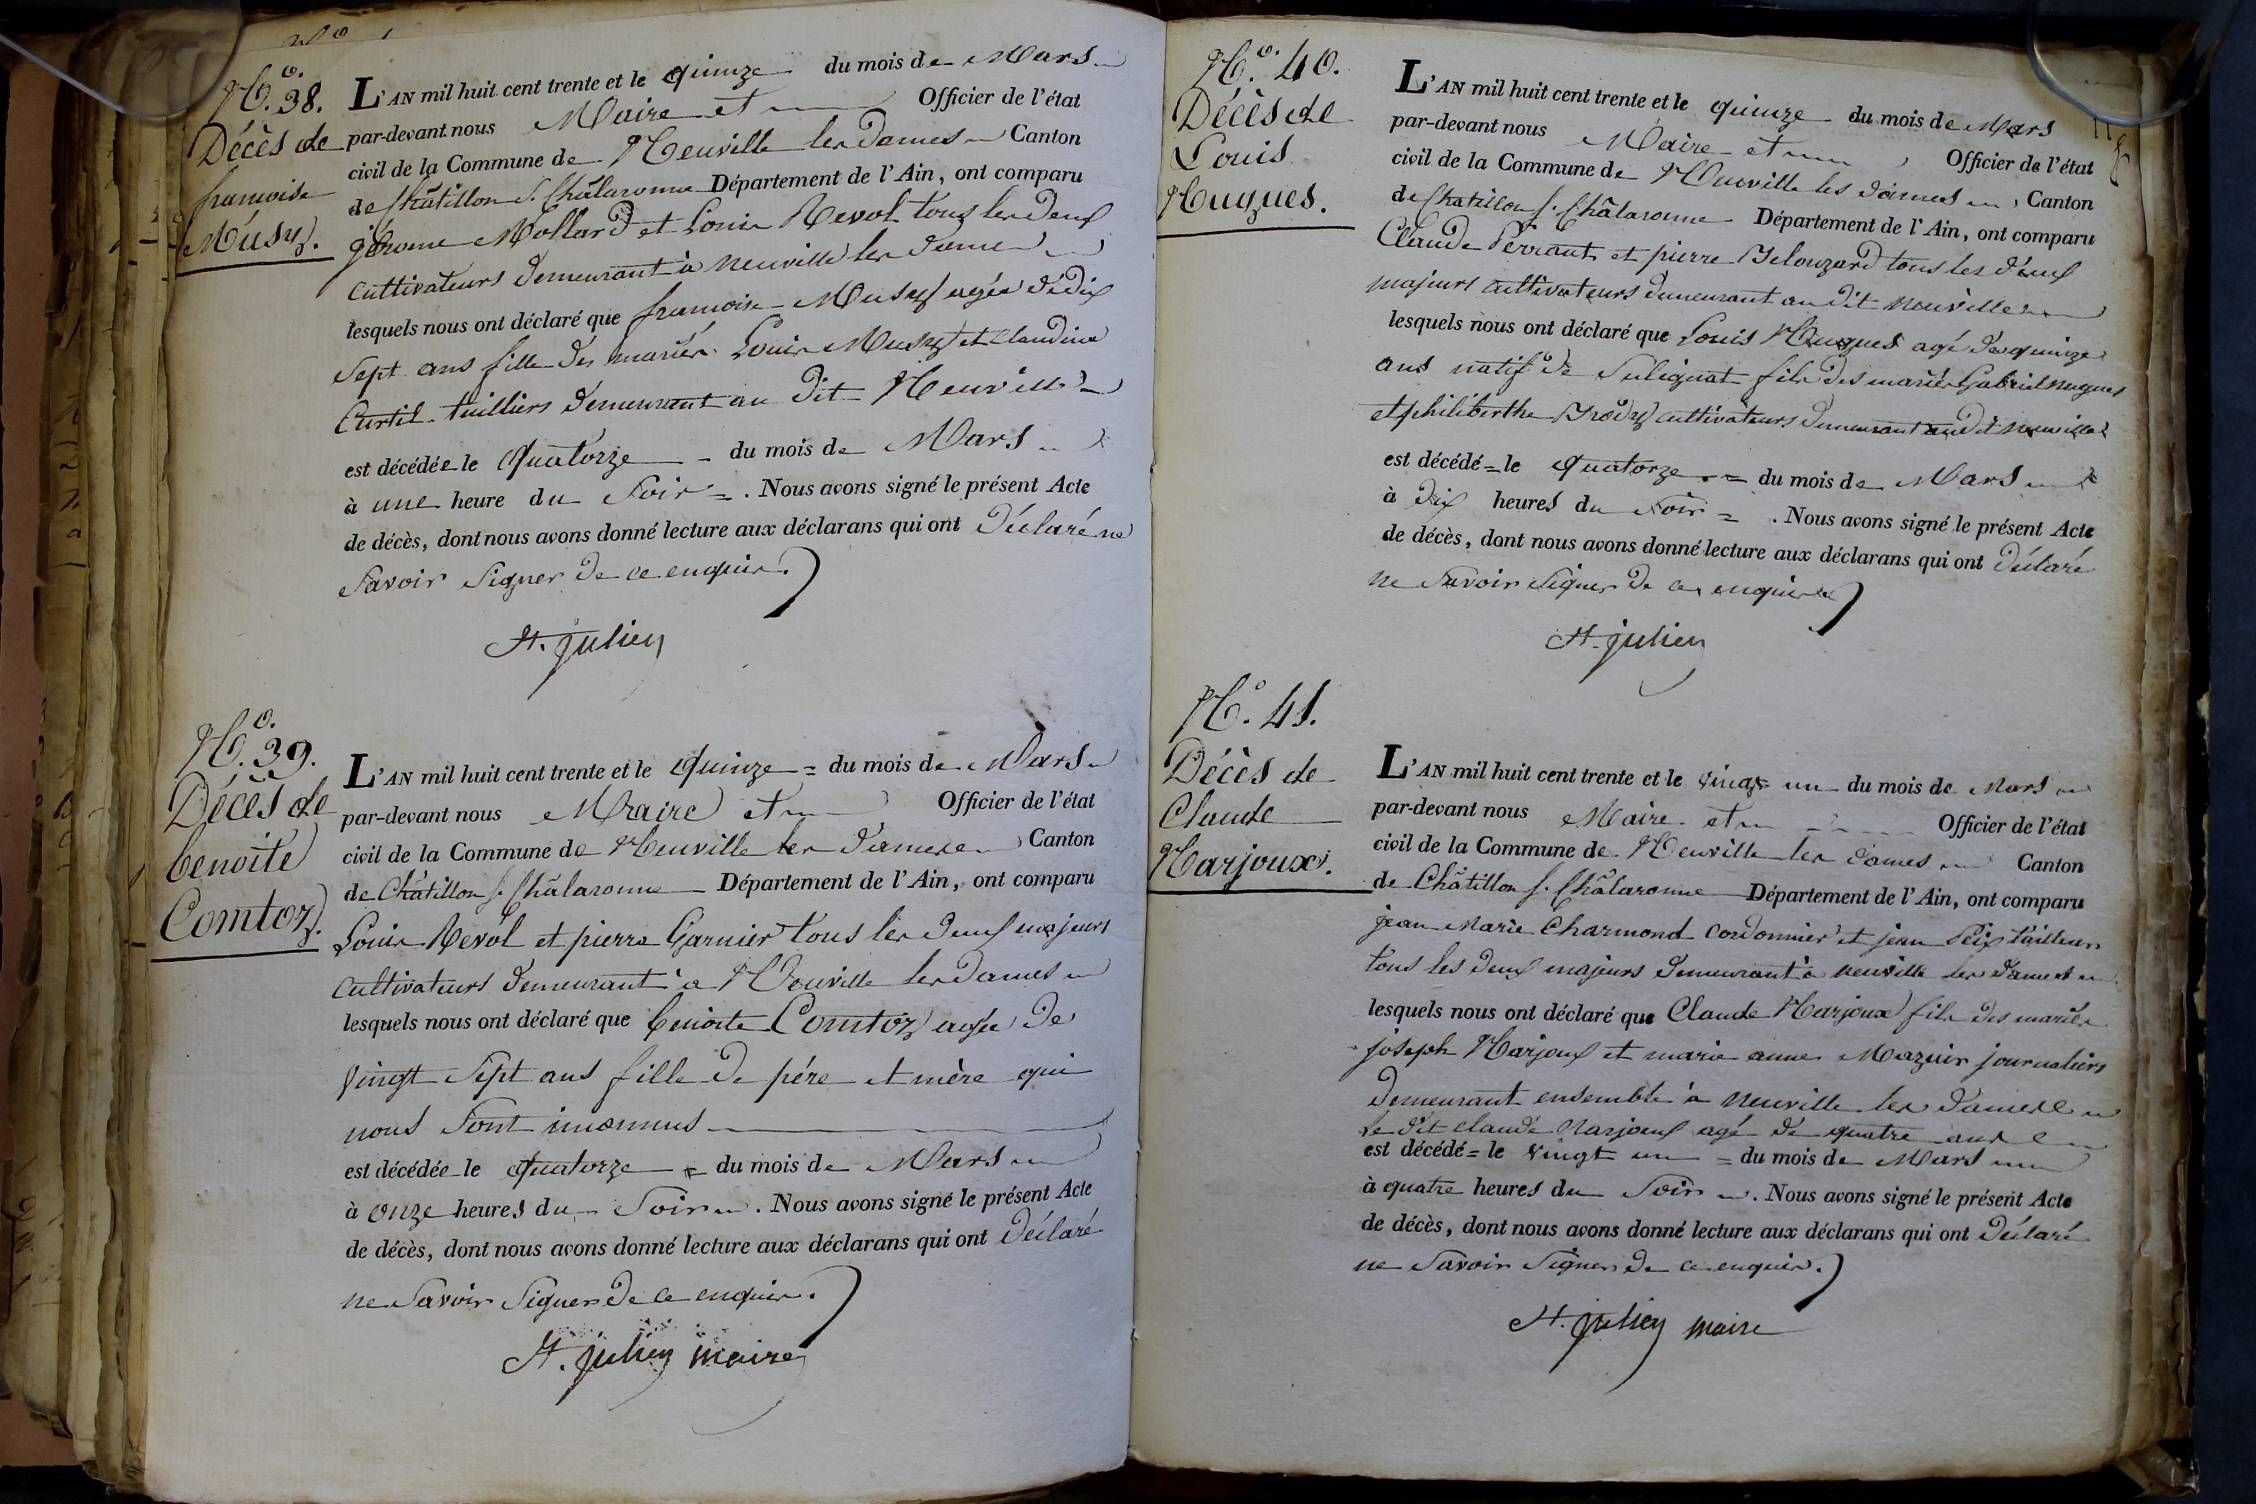 No. 38.
Décès de
françoise
Musy.
L'AN mil huit cent trente et le quinze du mois de Mars
par-devant nous Maire et Officier de l'état
civil de la Commune de Neuville les Dames Canton
de Châtillon s. Châlaronne Département de l'Ain, ont comparu
jérome Mollard et Louis Revol tous les deux
cultivateurs demeurant à neuville les dames
lesquels nous ont déclaré que françoise Musy agée de dix
sept ans fille des mariés Louis Musy et Claudine
Curtil tuilliers demeurant au dit Neuville
est décédée le quatorze du mois de Mars
à une heure du soir =. Nous avons signé le présent Acte
de décès, dont nous avons donné lecture aux déclarans qui ont déclaré ne
savoir signer de ce enquis.
St. julien
No. 39.
Décès de
benoite
Comtoz.
L'AN mil huit cent trente et le quinze = du mois de Mars
par-devant nous Maire et Officier de l'état
civil de la Commune de Neuville les dames Canton
de Châtillon s. Châlaronne Département de l'Ain, ont comparu
Louis Revol et pierre Garnier tous les deux majeurs
cultivateurs demeurant à Neuville les dames
lesquels nous ont déclaré que benoite Comtoz agée de
vingt sept ans fille de père et mère qui
nous sont inconnus
est décédée le quatorze = du mois de Mars
à onze heures du soir. Nous avons signé le présent Acte
de décès, dont nous avons donné lecture aux déclarans qui ont déclaré
ne savoir signer de ce enquis.
St. julien maire
No. 40.
Décès de
Louis
Hugues.
L'AN mil huit cent trente et le quinze du mois de Mars
par-devant nous Maire et Officier de l'état
civil de la Commune de Neuville les dames Canton
de Chatillon s. Châlaronne Département de l'Ain, ont comparu
Claude Perraut et pierre Belouzard tous les deux
majeurs cultivateurs demeurant au dit neuville
lesquels nous ont déclaré que Louis Hugues agé de quinze
ans natif de Sulignat fils des mariés Gabriel hugues
et philiberthe Brody cultivateurs demeurant au dit neuville
est décédé = le quatorze = du mois de Mars
à dix heures du soir =. Nous avons signé le présent Acte
de décès, dont nous avons donné lecture aux déclarans qui ont déclaré
ne savoir signer de ce enquis
St. julien
No. 41.
Décès de
Claude
Narjoux.
L'AN mil huit cent trente et le vingt un du mois de Mars
par-devant nous Maire et Officier de l'état
civil de la Commune de Neuville les dames Canton
de Châtillon s. Châlaronne Département de l'Ain, ont comparu
jean Marie Charmond cordonnier et jean Peix tailleur
tous les deux majeurs demeurant à neuville les dames
lesquels nous ont déclaré que Claude Narjoux fils des mariés
joseph Narjoux et marie anne Mazuir journaliers
demeurant ensemble à neuville les dames
Le dit claude Narjoux agé de quatre ans
est décédé = le vingt un = du mois de Mars
à quatre heures du soir. Nous avons signé le présent Acte
de décès, dont nous avons donné lecture aux déclarans qui ont déclaré
ne savoir signer de ce enquis.
St. julien maire